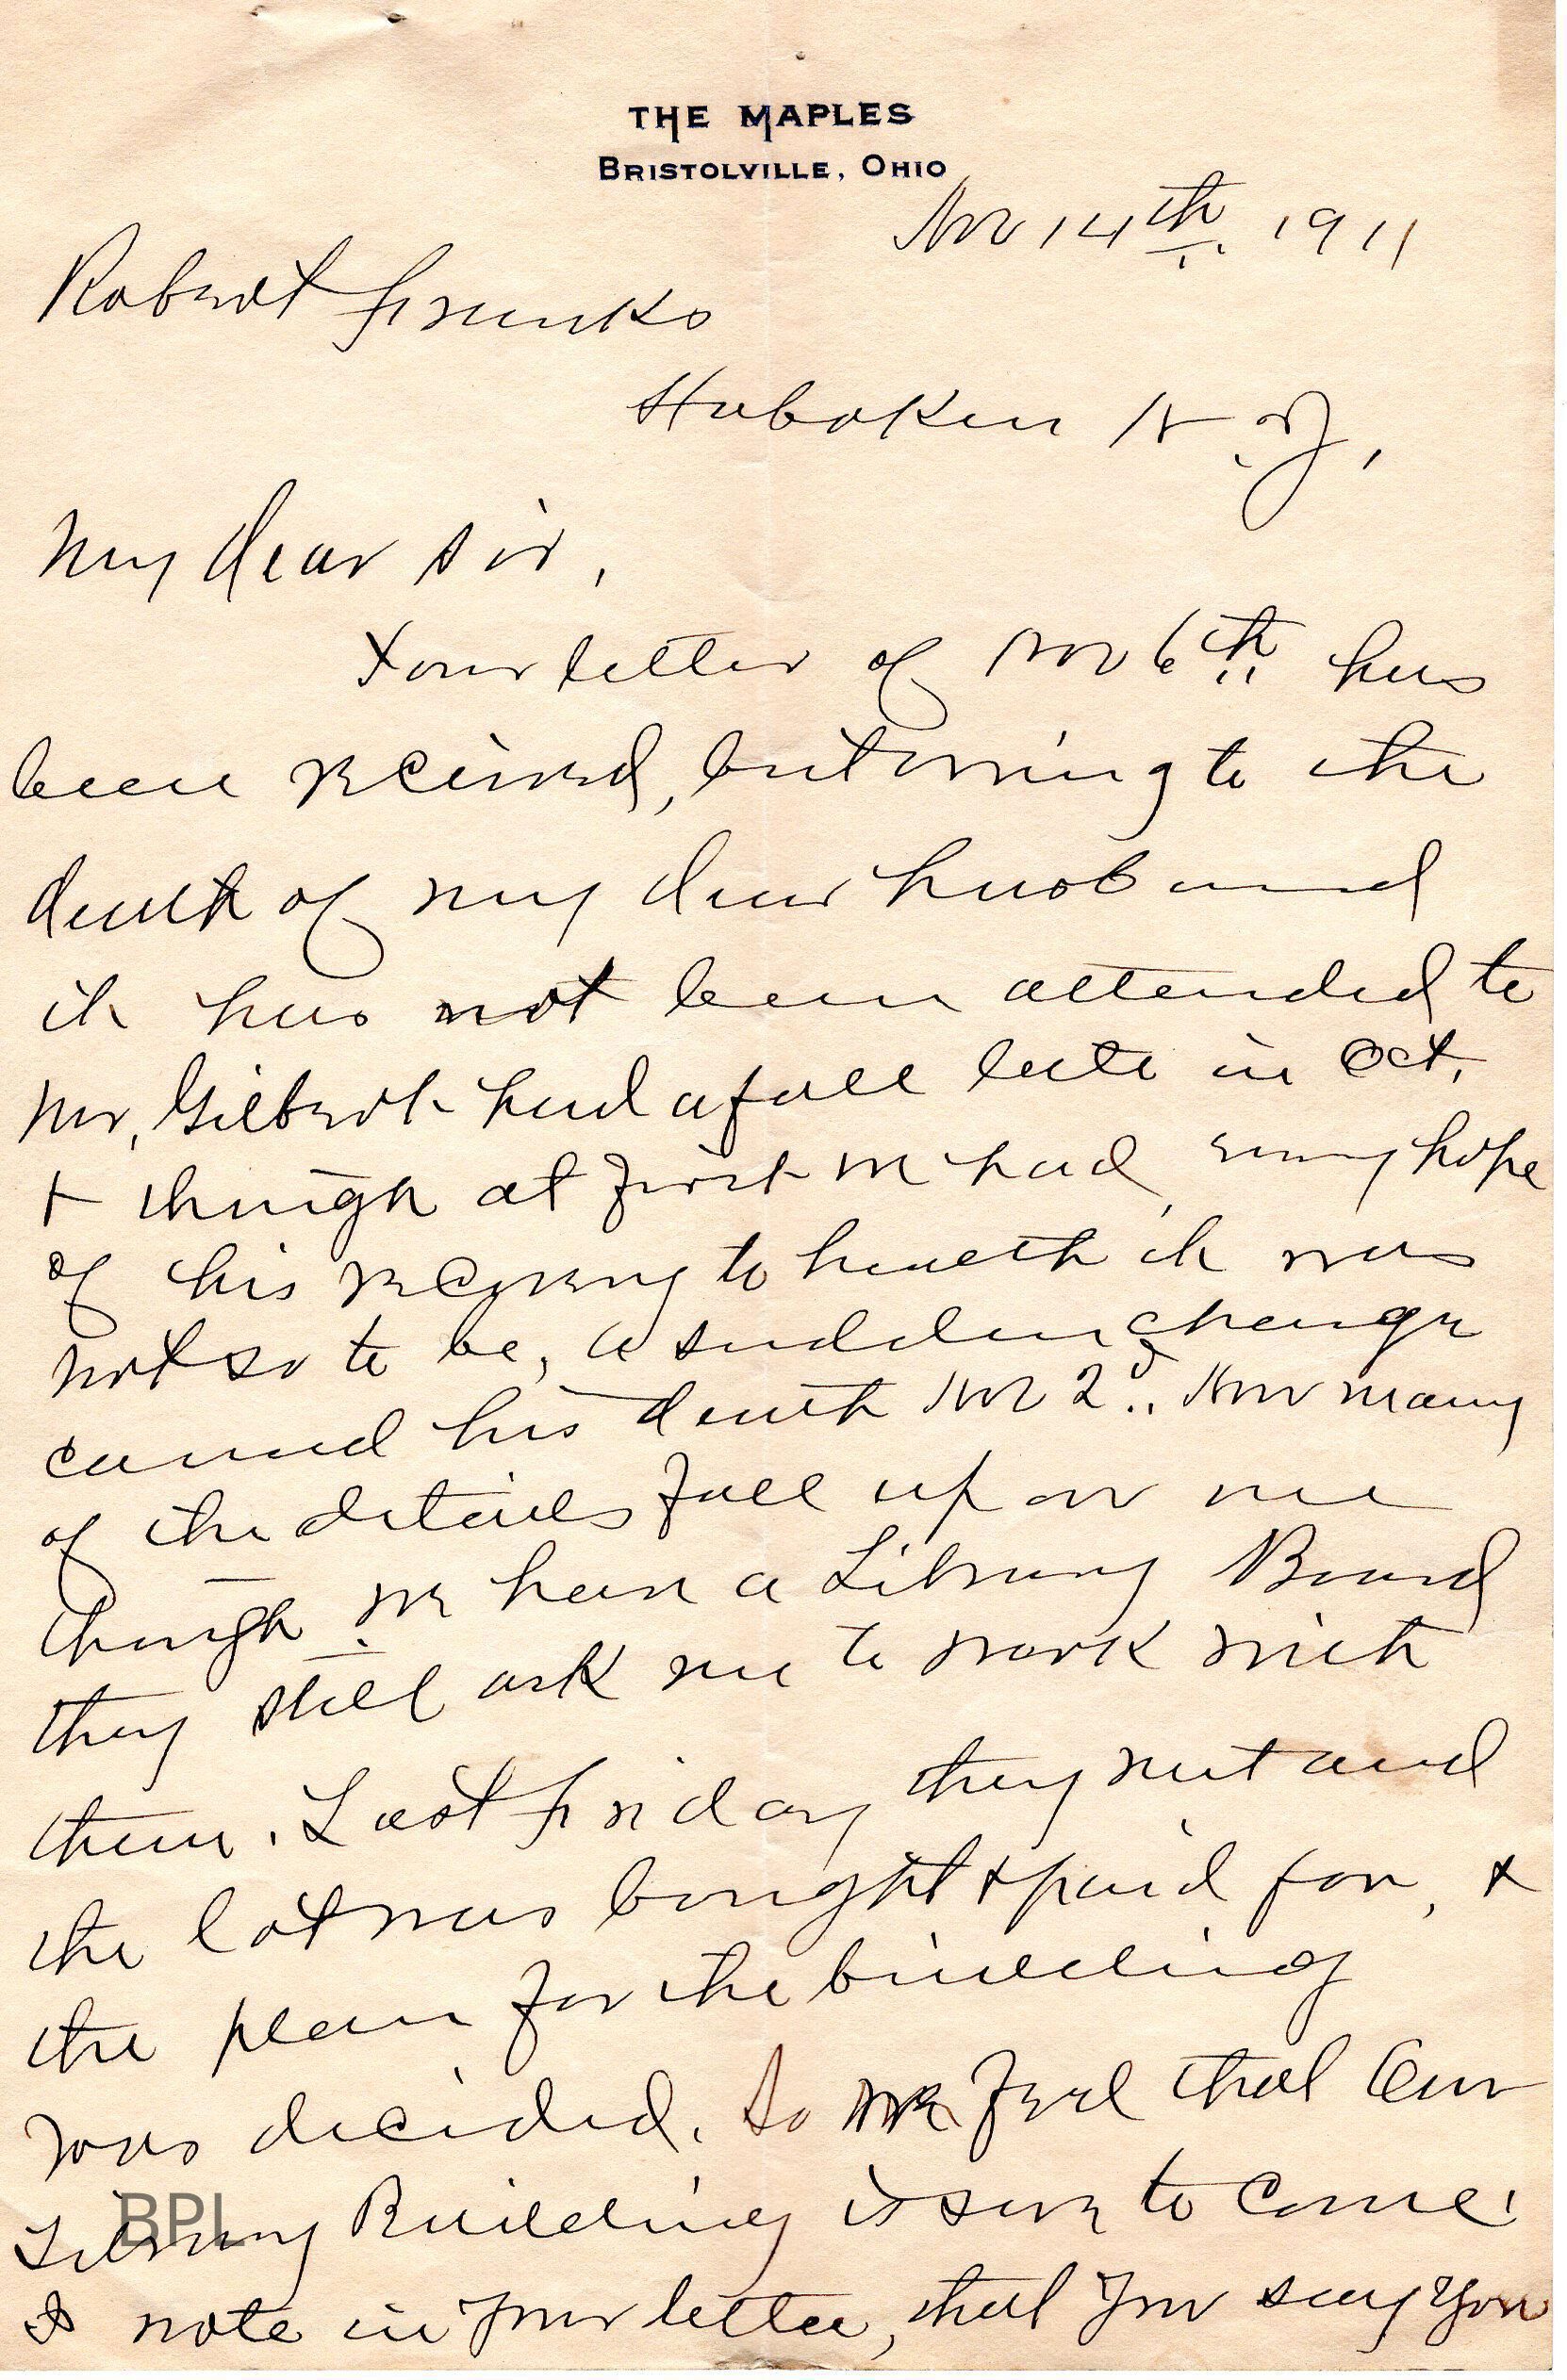 THE MAPLES
BRISTOLVILLE, OHIO
Nov 14th. 1911
Robert Franks
Hoboken N. J.,
My dear sir,
Your letter of Nov 6th has
been received, but owing to the
death of my dear husband
it has not been attended to
Mr, Gilbert had a fall late in Oct,
+ though at first we had, every hope
of his recovery to health it was
not so to be, a sudden change
caused his death Nov 2d.. Now many
of the details fall up on me
though we have a Library Board
they still ask me to work with
them. Last Friday they met and
the lot was bought + paid for, +
the plan for the building
was decided. So we feel that Our
Library Building is sure to come.
I note in your letter, that you say you
BPL